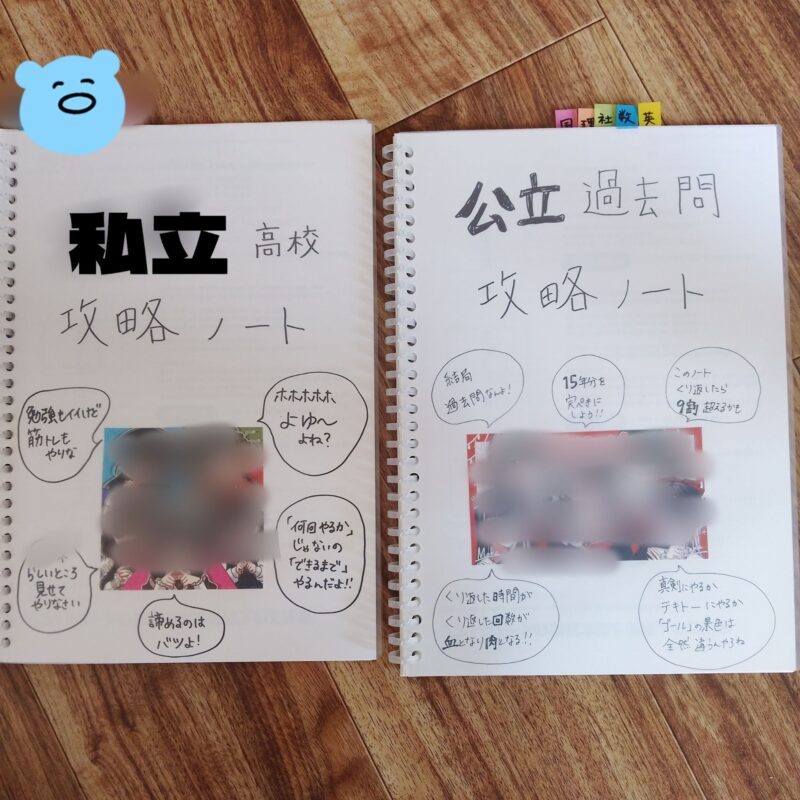 私立 高校
攻略ノート
勉強もイイけど
筋トレも
やりな
ホホホホホ
よゆ〜
よね?
「何回やるか」
じゃないの
「できるまで」
やるんだよ!!
らしいところ
見せて
やりなさい
諦めるのは
バツよ!
国 理 社 数 英
公立 過去問
攻略ノート
結局
過去問なんよ!
15年分を
完ぺきに
しよう!!
このノート
くり返したら
9割超えるかも
くり返した時間が
くり返した回数が
血となり肉となる!!
真剣にやるか
テキトーにやるか
「ゴール」の景色は
全然違うんやろね